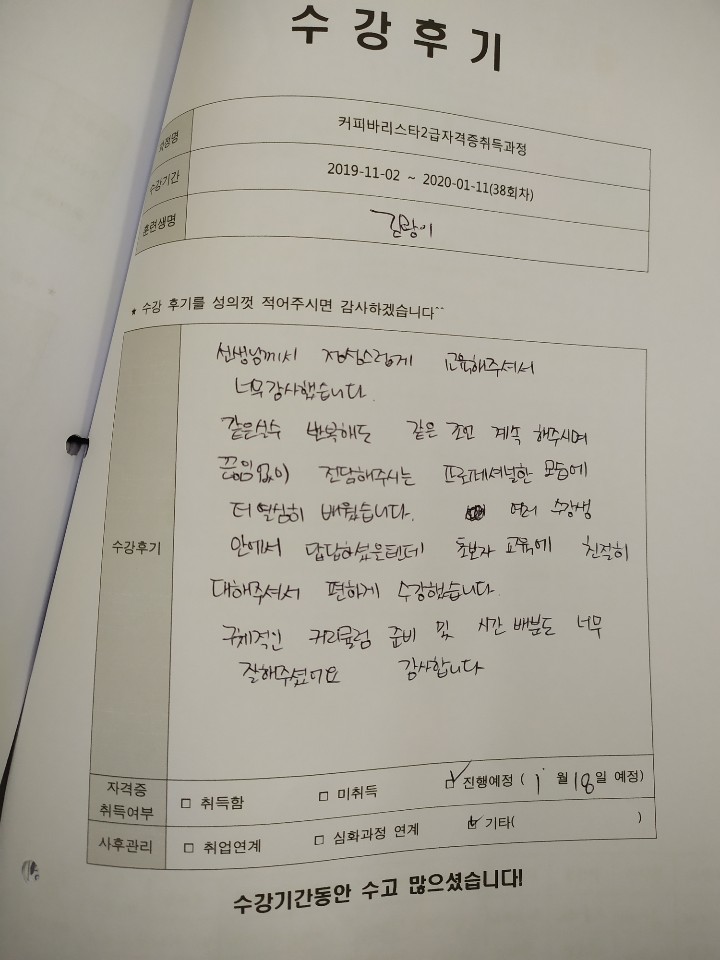 수강후기
과정명 커피바리스타2급자격증취득과정
수강기간 2019-11-02 ~ 2020-01-11(38회차)
훈련생명
* 수강 후기를 성의껏 적어주시면 감사하겠습니다^^
수강후기
선생님께서 정성스럽게 교육해주셔서
너무 감사했습니다.
같은실수 반복해도 같은 조언 계속 해주시며
끊임없이 전담해주시는 프로페셔널한 모습에
더 열심히 배웠습니다. 여러 수강생
안에서 답답하셨을텐데 초보자 교육에 친절히
대해주셔서 편하게 수강했습니다.
구체적인 커리큘럼 준비 및 시간 배분도 너무
잘해주셨어요 감사합니다
자격증 취득여부 □ 취득함 □ 미취득 ☑ 진행예정 ( 1 월 18일 예정)
사후관리 □ 취업연계 □ 심화과정 연계 ☑ 기타( )
수강기간동안 수고 많으셨습니다!